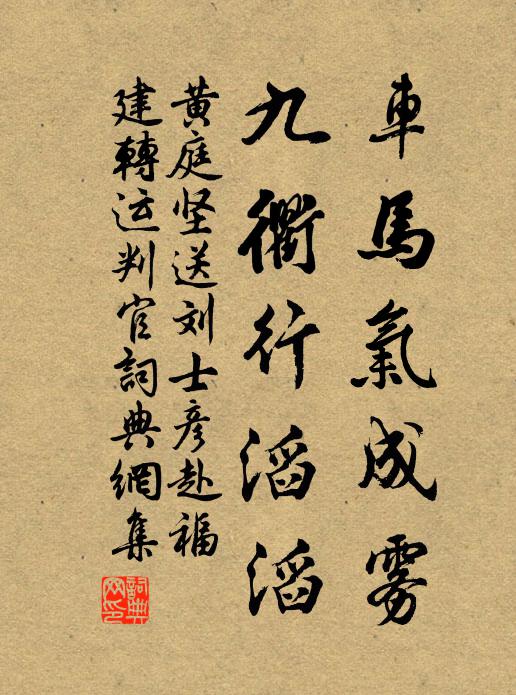 車馬氣成雾
九衢行滔滔
黄庭坚送刘士彦赴福
建轉运判官詞典網集
詞典網印